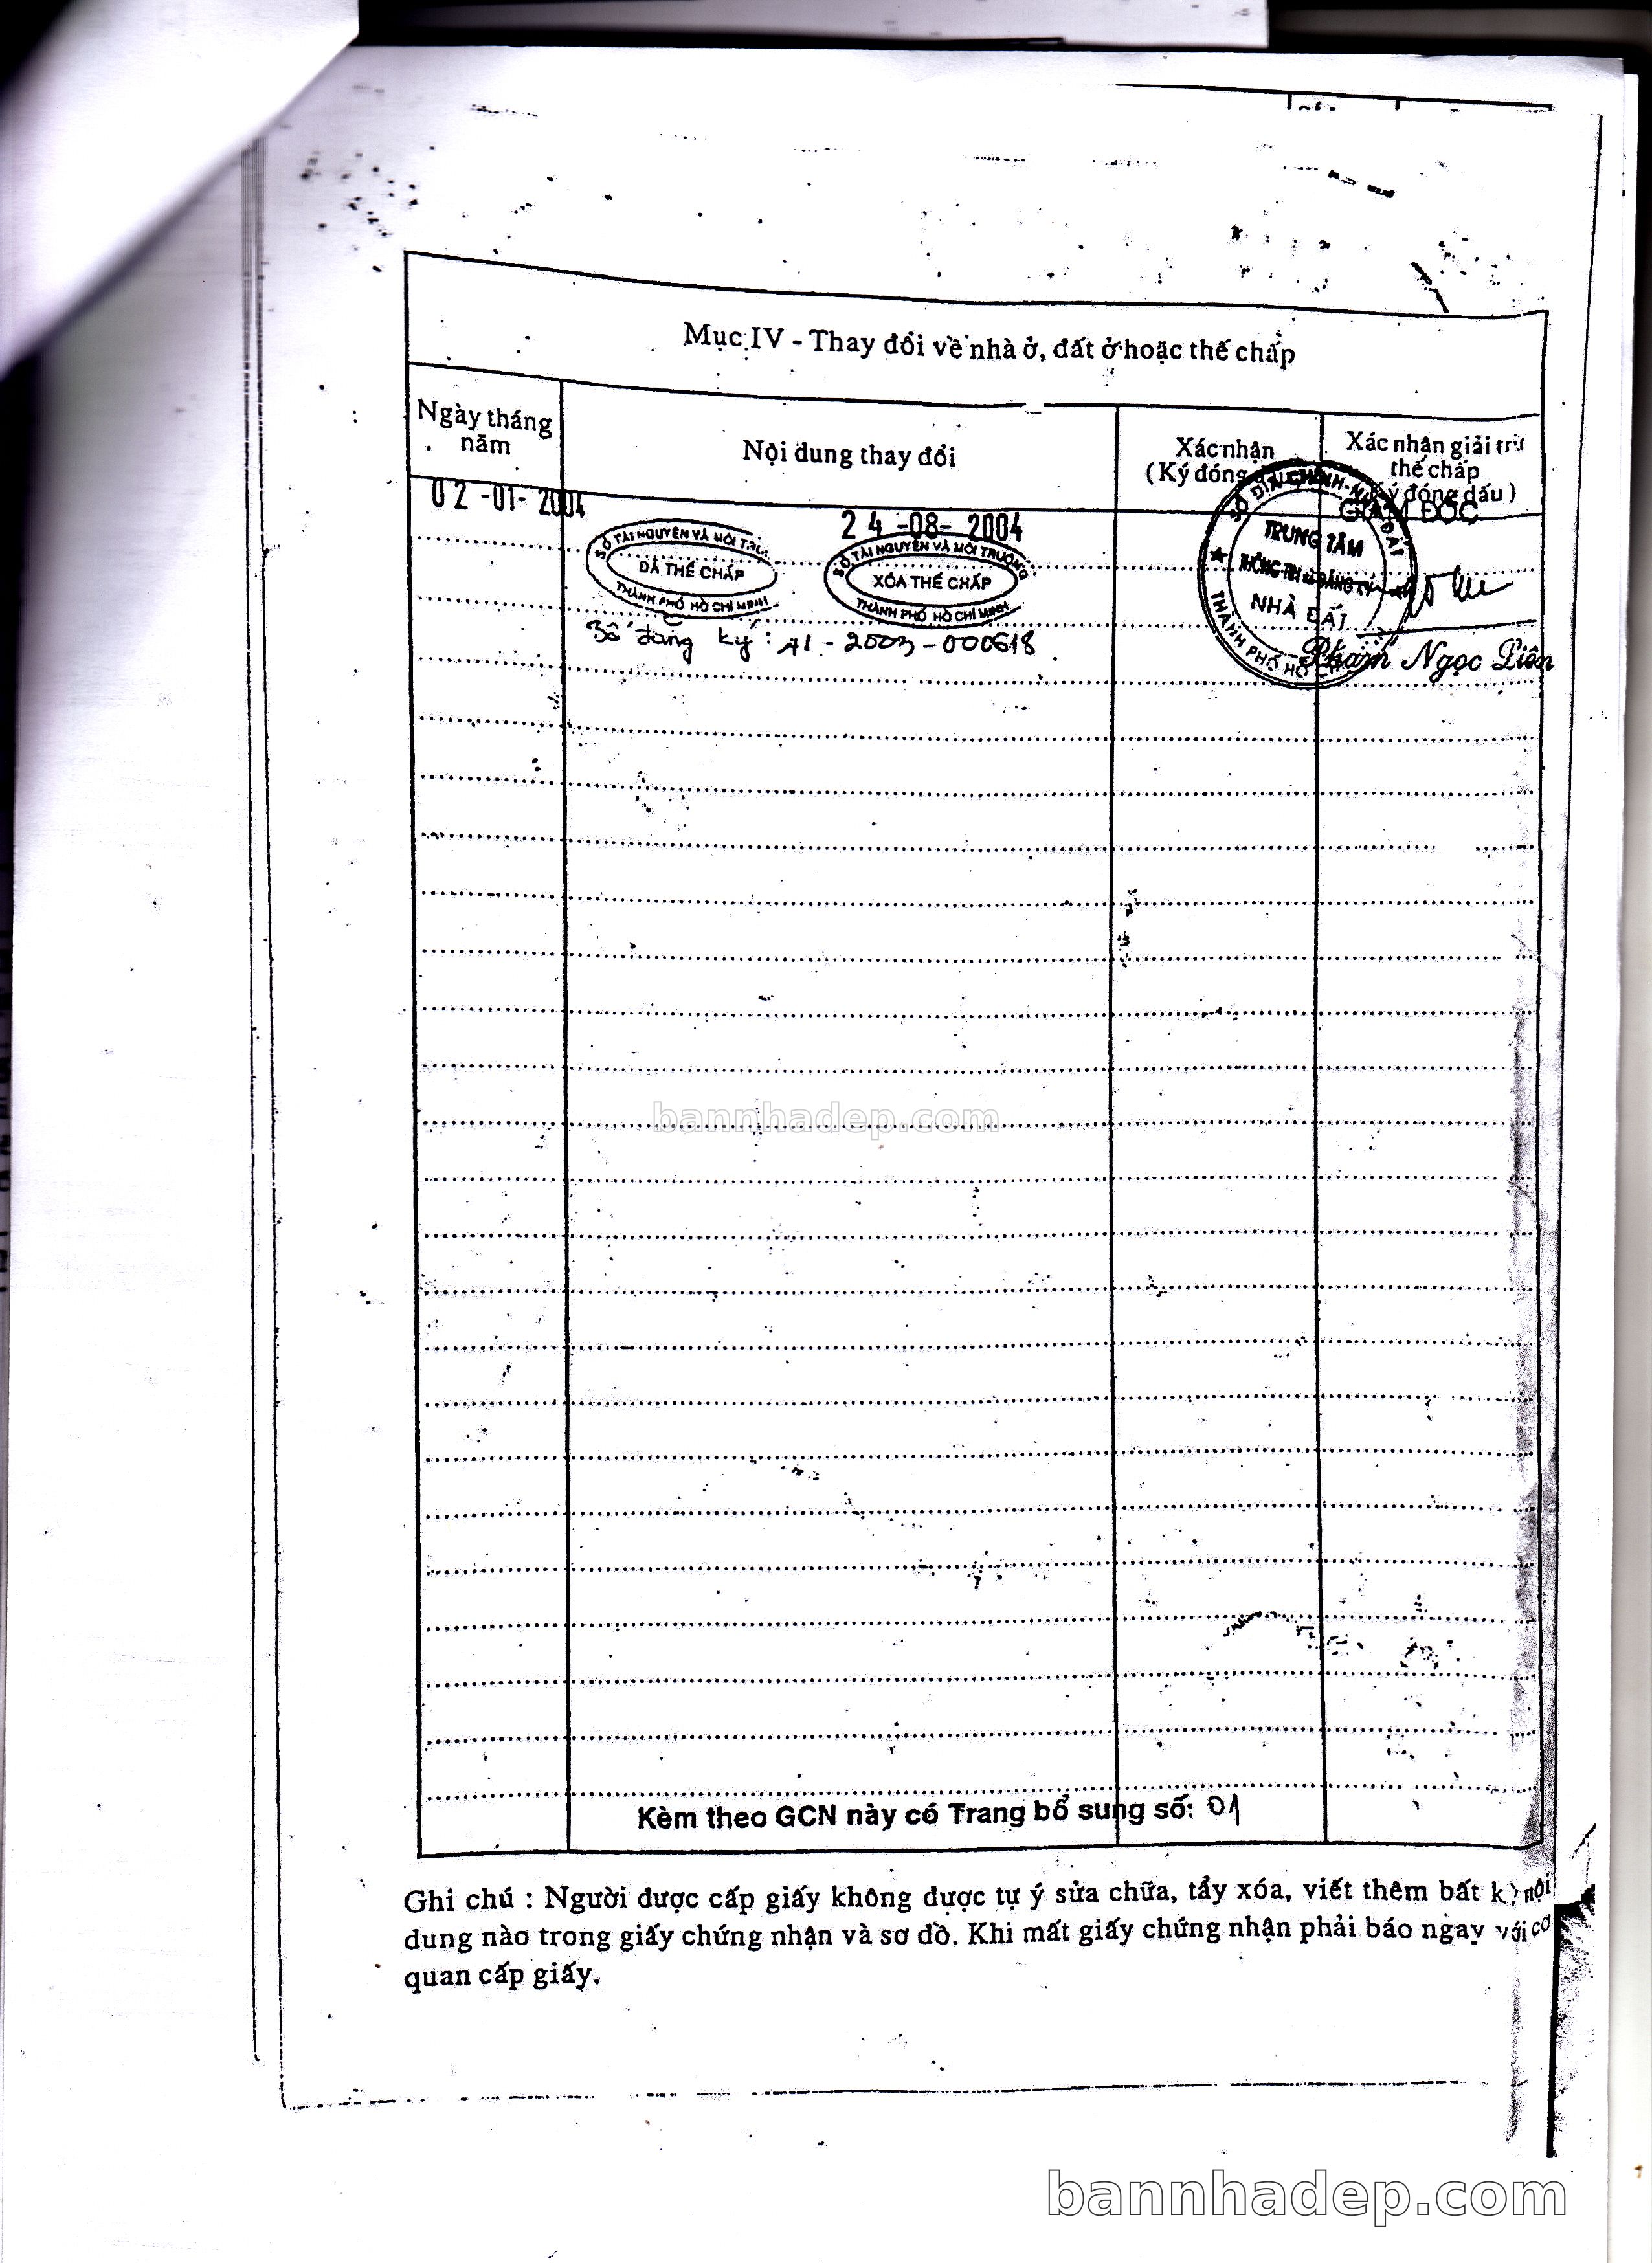 Mục IV - Thay đổi về nhà ở, đất ở hoặc thế chấp
Ngày tháng
năm
Nội dung thay đổi
Xác nhận
(Ký đóng
Xác nhận giải trừ
thế chấp
ý đóng dấu)
02-01-2004
24-08-2004
GIÁM ĐỐC
SỞ TÀI NGUYÊN VÀ MÔI TRƯ
ĐÃ THẾ CHẤP
THÀNH PHỐ HỒ CHÍ MINH
SỞ TÀI NGUYÊN VÀ MÔI TRƯỜNG
XÓA THẾ CHẤP
THÀNH PHỐ HỒ CHÍ MINH
SỞ ĐỊA CHÍNH-NHÀ ĐẤT
TRUNG TÂM
THÔNG TIN và ĐĂNG KÝ
NHÀ ĐẤT
THÀNH PHỐ HỒ
Số đăng ký: A1 - 2003 - 000618
Phạm Ngọc Liên
bannhadep.com
Kèm theo GCN này có Trang bổ sung số: 01
Ghi chú : Người được cấp giấy không được tự ý sửa chữa, tẩy xóa, viết thêm bất kỳ nội
dung nào trong giấy chứng nhận và sơ đồ. Khi mất giấy chứng nhận phải báo ngay với cơ
quan cấp giấy.
bannhadep.com